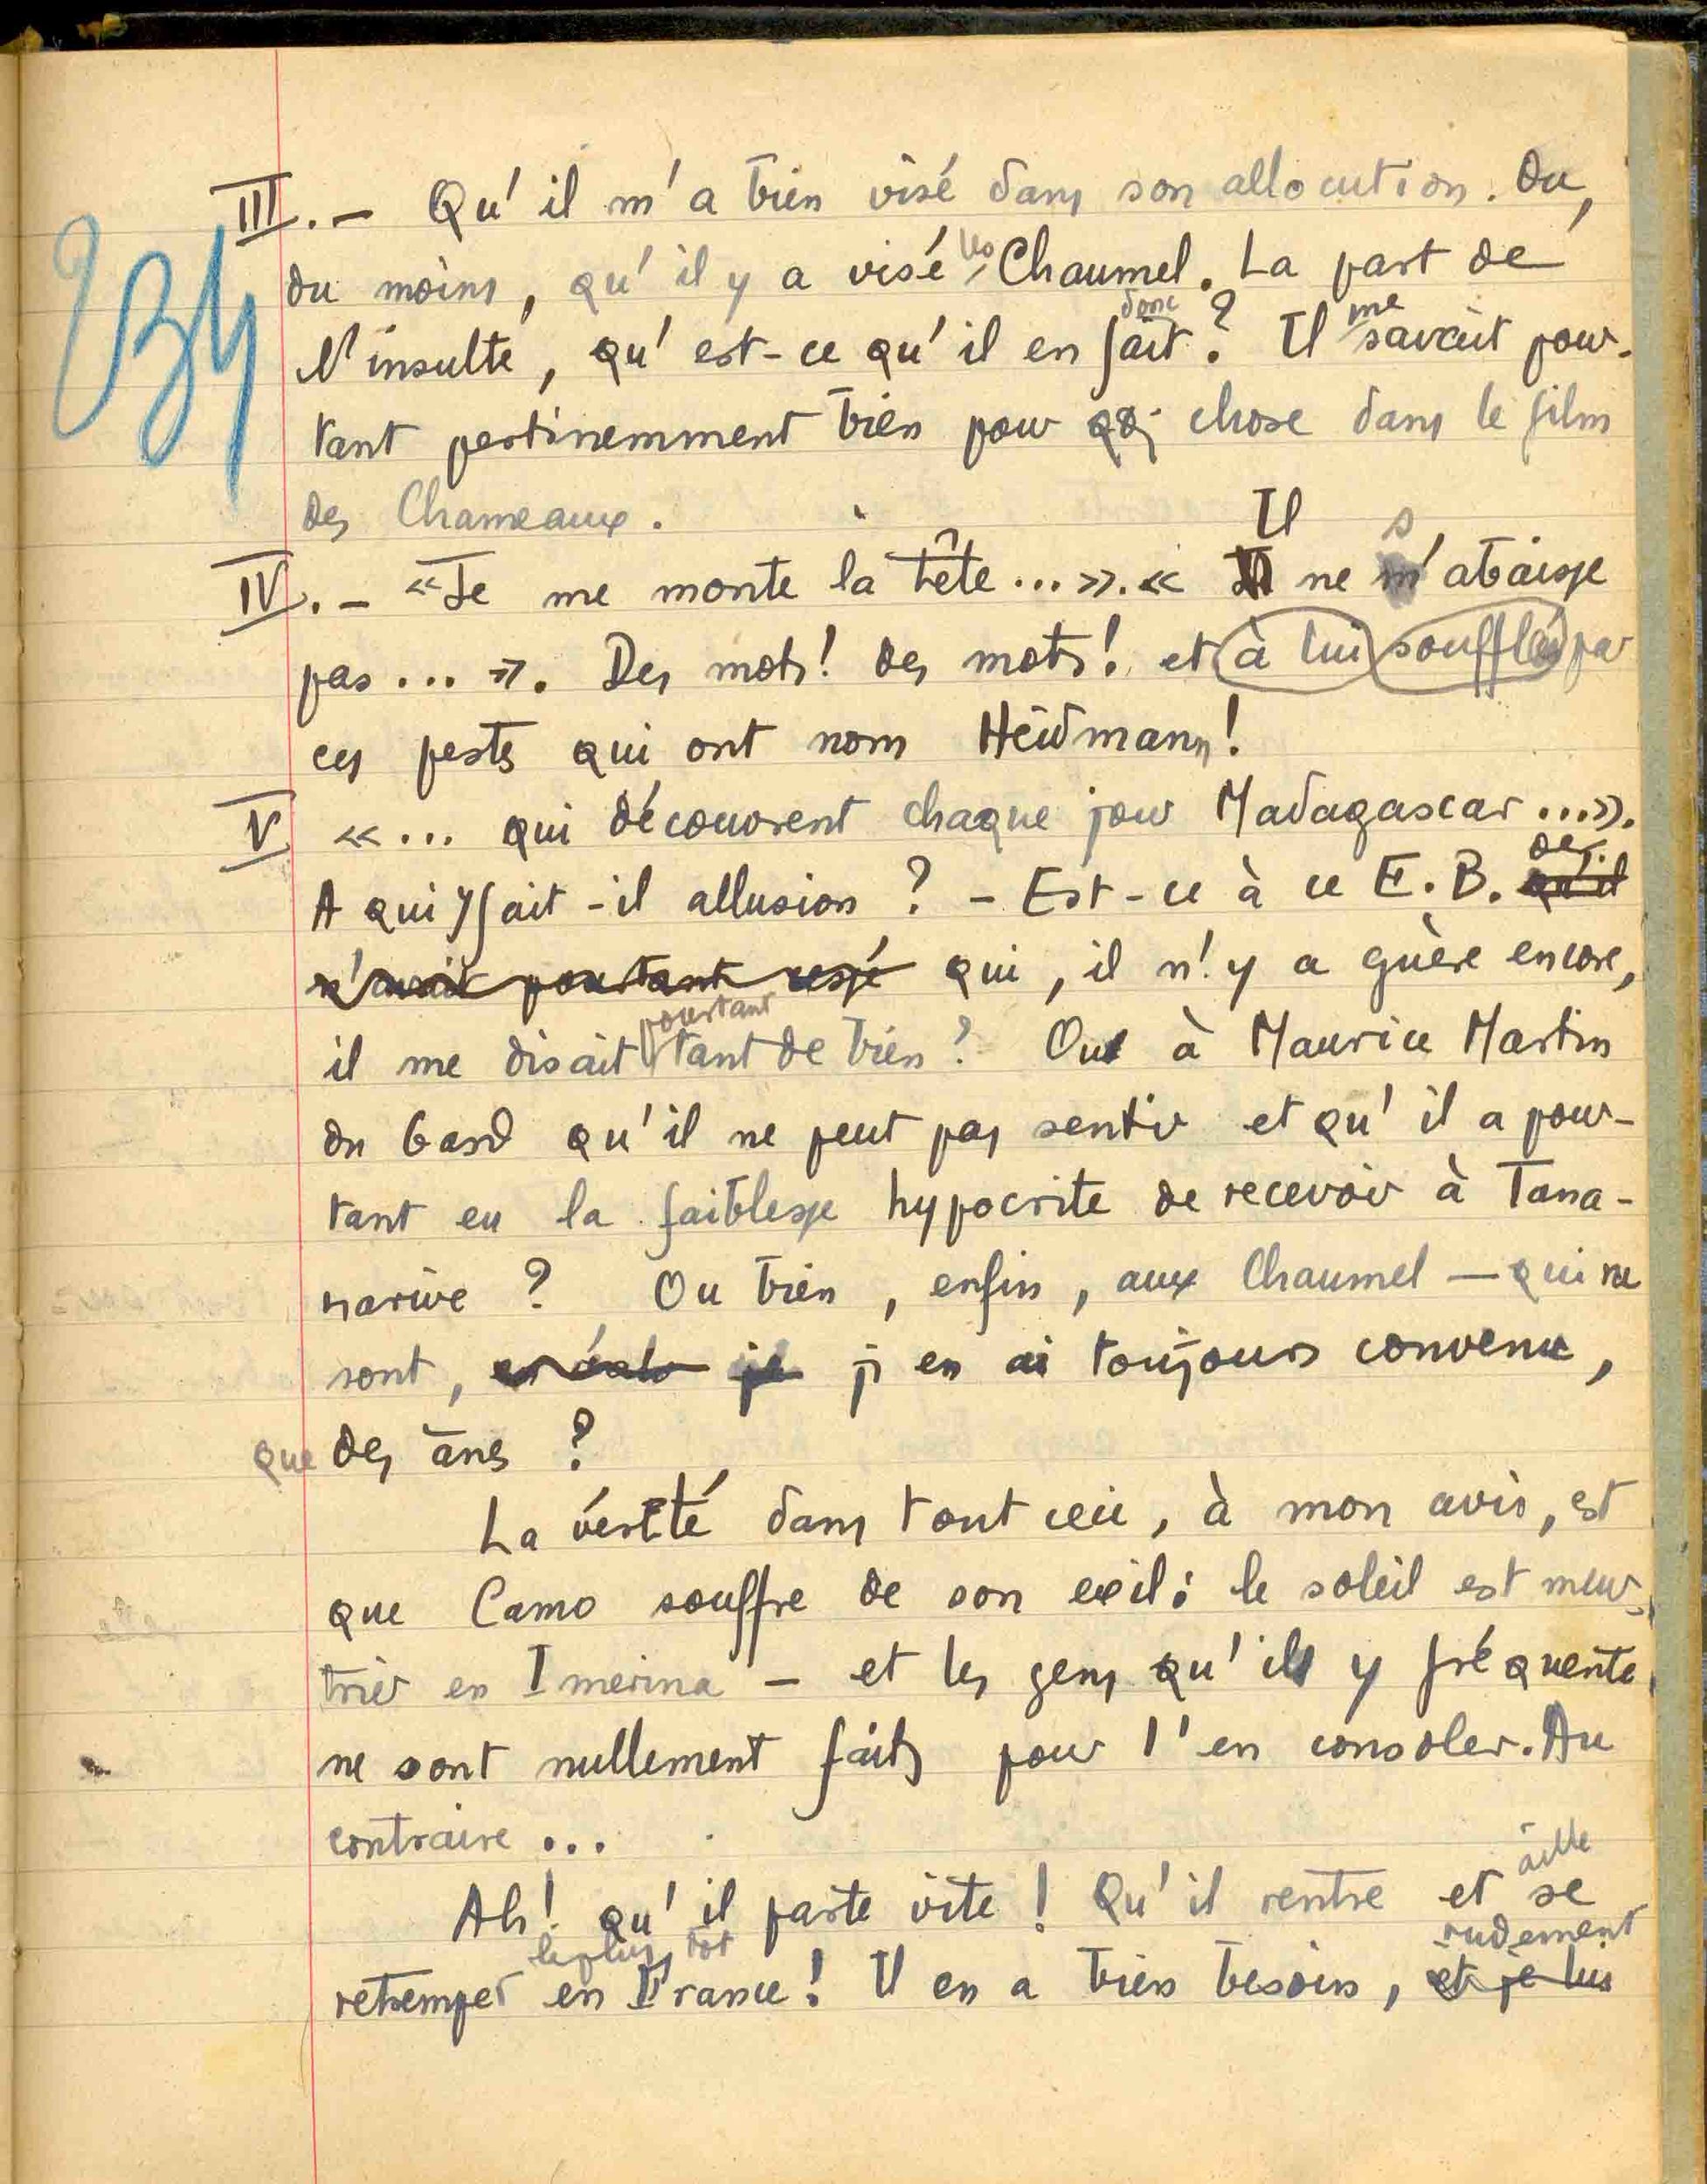 234
III. — Qu'il m'a bien visé dans son allocution. Ou,
du moins, qu'il y a visé les Chaumel. La part de
l'insulte, qu'est-ce qu'il en fait donc ? Il me savait pour-
tant pertinemment bien pour qq; chose dans le film
des Chameaux.
IV. — « Je me monte la tête... ». « Il ne s'abaisse
pas... ». Des mots! des mots! et à lui soufflés par
ces pestes qui ont nom Heidmann!
V «... qui découvrent chaque jour Madagascar...».
A qui y fait-il allusion ? — Est-ce à ce E. B. de qu'il
n'avait pourtant cessé qui, il n'y a guère encore,
il me disait pourtant tant de bien ? Ou à Maurice Martin
du Gard qu'il ne peut pas sentir et qu'il a pour-
tant eu la faiblesse hypocrite de recevoir à Tana-
narive ? Ou bien, enfin, aux Chaumel — qui ne
sont, je j'en ai toujours convenu,
que des ânes ?
La vérité dans tout ceci, à mon avis, est
que Camo souffre de son exil: le soleil est meur-
trier en Imerina — et les gens qu'il y fréquente
ne sont nullement faits pour l'en consoler. Au
contraire...
Ah! qu'il parte vite ! Qu'il rentre et aille se
retremper le plus tôt en France! Il en a bien besoin, rudement et je lui